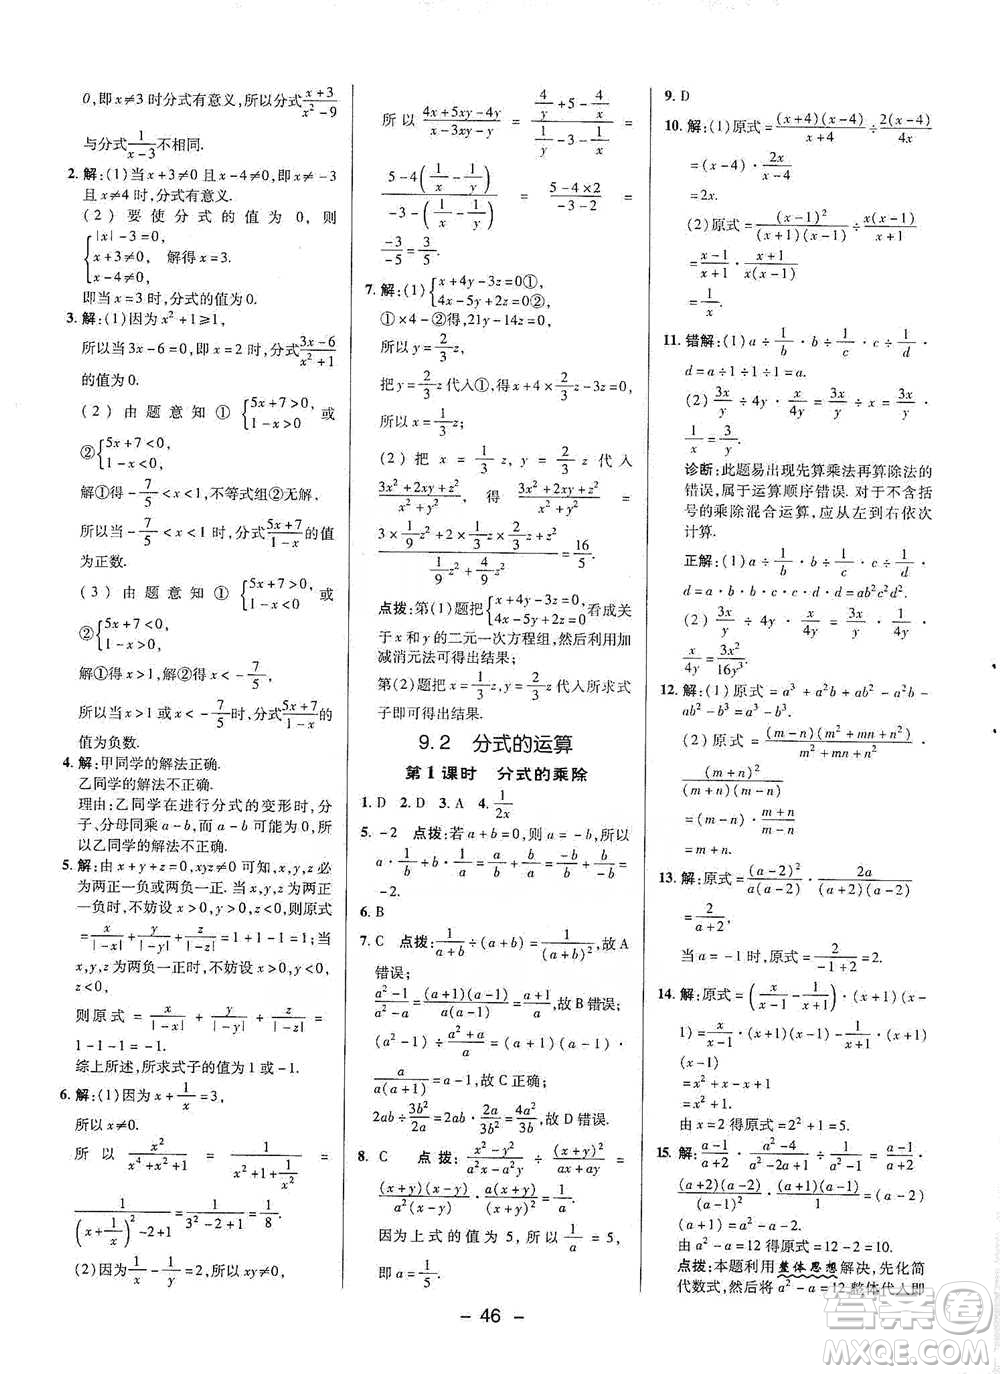 0,即 x≠3 时分式有意义,所以分式 (x+3)/(x²-9)
与分式 1/(x-3) 不相同.
2. 解:(1)当 x+3≠0 且 x-4≠0,即 x≠-3
且 x≠4 时,分式有意义.
(2) 要使分式的值为 0,则
{|x|-3=0,
x+3≠0, 解得 x=3.
x-4≠0,
即当 x=3 时,分式的值为 0.
3. 解:(1)因为 x²+1≥1,
所以当 3x-6=0,即 x=2 时,分式 (3x-6)/(x²+1)
的值为 0.
(2) 由题意知 ① {5x+7>0, 1-x>0 或
② {5x+7<0, 1-x<0,
解①得 -7/5<x<1,不等式组②无解.
所以当 -7/5<x<1 时,分式 (5x+7)/(1-x) 的值
为正数.
(3) 由题意知 ① {5x+7>0, 1-x<0 或
② {5x+7<0, 1-x>0,
解①得 x>1,解②得 x<-7/5,
所以当 x>1 或 x<-7/5 时,分式 (5x+7)/(1-x) 的
值为负数.
4. 解:甲同学的解法正确.
乙同学的解法不正确.
理由:乙同学在进行分式的变形时,分
子、分母同乘 a-b,而 a-b 可能为 0,所
以乙同学的解法不正确.
5. 解:由 x+y+z=0,xyz≠0 可知,x,y,z 必
为两正一负或两负一正. 当 x,y,z 为两正
一负时,不妨设 x>0,y>0,z<0,则原式
= x/|-x| + y/|-y| + z/|-z| =1+1-1=1;当
x,y,z 为两负一正时,不妨设 x>0,y<0,
z<0,
则原式 = x/|-x| + y/|-y| + z/|-z| =
1-1-1=-1.
综上所述,所求式子的值为 1 或 -1.
6. 解:(1)因为 x+1/x=3,
所以 x≠0.
所以 x²/(x⁴+x²+1) = 1/(x²+1+1/x²) =
1/((x+1/x)²-2+1) = 1/(3²-2+1) = 1/8.
(2)因为 1/x-1/y=2,所以 xy≠0,
所以 (4x+5xy-4y)/(x-3xy-y) = (4/y+5-4/x)/(1/y-3-1/x) =
(5-4(1/x-1/y))/(-3-(1/x-1/y)) = (5-4×2)/(-3-2) =
-3/-5 = 3/5.
7. 解:(1) {x+4y-3z=0①, 4x-5y+2z=0②,
①×4-②得,21y-14z=0,
所以 y=2/3 z,
把 y=2/3 z 代入①,得 x+4×2/3 z-3z=0,
所以 x=1/3 z.
(2) 把 x=1/3 z, y=2/3 z 代入
(3x²+2xy+z²)/(x²+y²) 得 (3x²+2xy+z²)/(x²+y²) =
(3×1/9 z²+2×2/9 z²+z²)/(1/9 z²+4/9 z²) = 16/5.
点拨:第(1)题把 {x+4y-3z=0, 4x-5y+2z=0 看成关
于 x 和 y 的二元一次方程组,然后利用加
减消元法可得出结果;
第(2)题把 x=1/3 z,y=2/3 z 代入所求式
子即可得出结果.
9.2 分式的运算
第 1 课时 分式的乘除
1. D 2. D 3. A 4. 1/2x
5. -2 点拨:若 a+b=0,则 a=-b,所以
a·1/b+b·1/a=a/b+b/a=-b/b+a/-a=
-2.
6. B
7. C 点拨:1/(a+b)÷(a+b)=1/(a+b)²,故 A
错误;
(a²-1)/(a²-a)=(a+1)(a-1)/a(a-1)=(a+1)/a,故 B 错误;
(a²-1)÷(a²+a)/a=(a+1)(a-1)·
a/a(a+1)=a-1,故 C 正确;
2ab÷3b²/2a=2ab·2a/3b²=4a²/3b,故 D 错误.
8. C 点拨:(x²-y²)/(a²x-a²y)÷(x+y)²/(ax+ay)=
(x+y)(x-y)/a²(x-y)·a(x+y)/(x+y)²=1/a.
因为上式的值为 5,所以 1/a=5,
即 a=1/5.
9. D
10. 解:(1)原式=(x+4)(x-4)/(x+4)÷2(x-4)/4x
=(x-4)·2x/(x-4)
=2x.
(2)原式=(x-1)²/(x+1)(x-1)÷x(x-1)/(x+1)
=(x-1)/(x+1)·(x+1)/x(x-1)
=1/x.
11. 错解:(1)a÷1/b·b÷1/c·c÷1/d·
d=a÷1÷1÷1=a.
(2)3x/y÷4y·x/4y=3x/y÷x=3x/y·
1/x=3/y.
诊断:此题易出现先算乘法再算除法的
错误,属于运算顺序错误. 对于不含括
号的乘除混合运算,应从左到右依次
计算.
正解:(1)a÷1/b·b÷1/c·c÷1/d·
d=a·b·b·c·c·d·d=ab²c²d².
(2)3x/y÷4y·x/4y=3x/y·1/4y·
x/4y=3x²/16y³.
12. 解:(1)原式=a³+a²b+ab²-a²b-
ab²-b³=a³-b³.
(2)原式=(m-n)(m²+mn+n²)/(m²+mn+n²)·
(m+n)²/(m+n)(m-n)
=(m-n)·(m+n)/(m-n)
=m+n.
13. 解:原式=(a-2)²/a(a-2)·2a/(a+2)(a-2)
=2/(a+2).
当 a=-1 时,原式=2/(-1+2)=2.
14. 解:原式=(x/(x-1)-1/(x+1))·(x+1)(x-
1)=x/(x-1)·(x+1)(x-1)-1/(x+1)·(x+1)
(x-1)
=x²+x-x+1
=x²+1.
由 x=2 得原式=2²+1=5.
15. 解:(a-1)/(a+2)·(a²-4)/(a²-2a+1)÷1/(a²-1)=(a-1)/(a+2)·
(a+2)(a-2)/(a-1)²·(a+1)(a-1)/1=(a-2)
(a+1)=a²-a-2.
由 a²-a=12 得原式=12-2=10.
点拨:本题利用整体思想解决,先化简
代数式,然后将 a²-a=12 整体代入即
- 46 -
答案圈